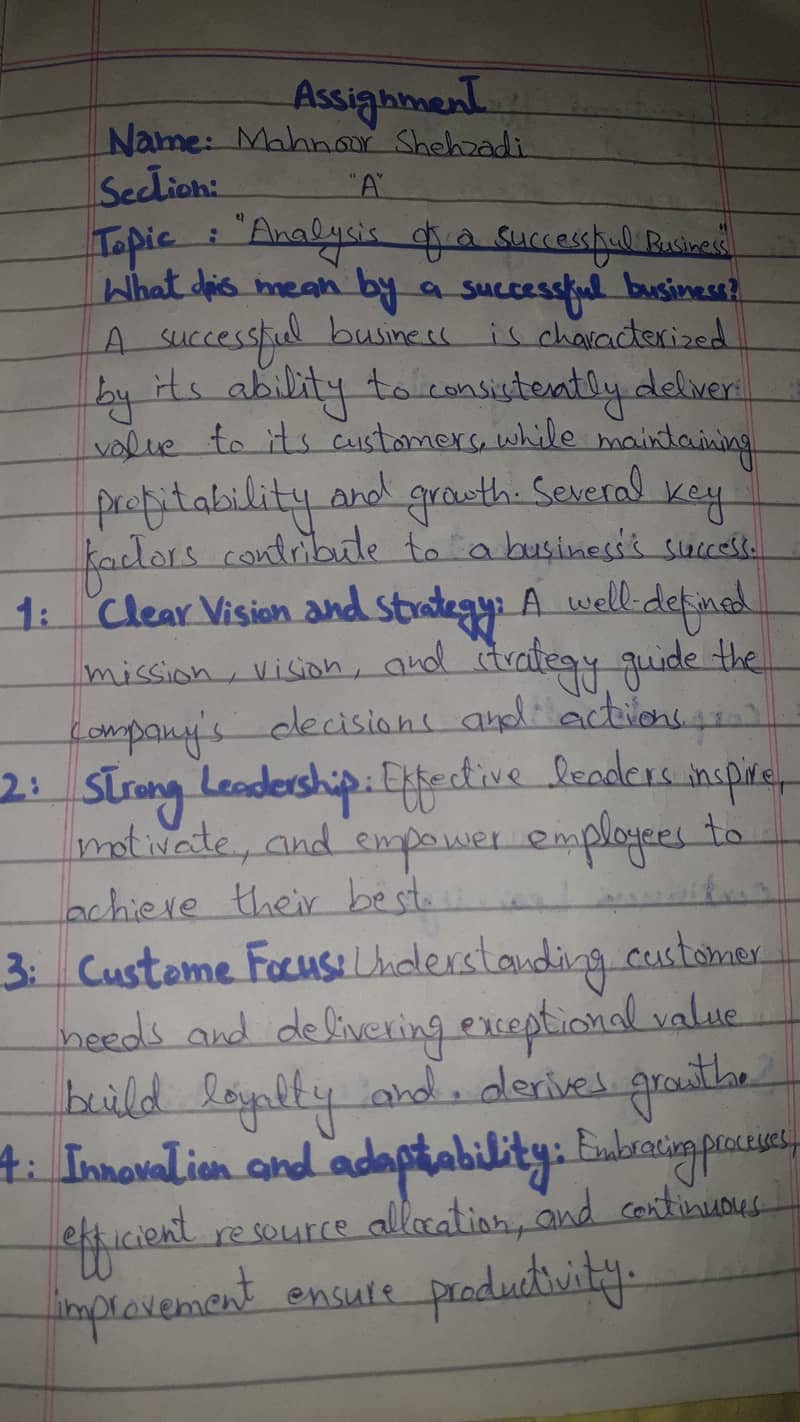 Assignment
Name: Mahnoor Shehzadi
Section: "A"
Topic : "Analysis of a successful Business"
What is mean by a successful business?
A successful business is characterized
by its ability to consistently deliver
value to its customers, while maintaining
profitability and growth. Several key
factors contribute to a business's success.
1: Clear Vision and strategy: A well-defined
mission, vision, and strategy guide the
company's decisions and actions.
2: Strong Leadership: Effective leaders inspire,
motivate, and empower employees to
achieve their best.
3: Custome Focus: Understanding customer
needs and delivering exceptional value
build loyalty and derives growth.
4: Innovation and adaptability: Embracing processes,
efficient resource allocation, and continuous
improvement ensure productivity.